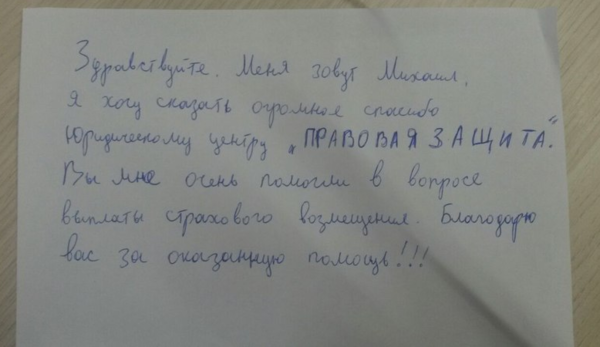 Здравствуйте. Меня зовут Михаил.
Я хочу сказать огромное спасибо
юридическому центру „ПРАВОВАЯ ЗАЩИТА".
Вы мне очень помогли в вопросе
выплаты страхового возмещения. Благодарю
вас за оказанную помощь!!!